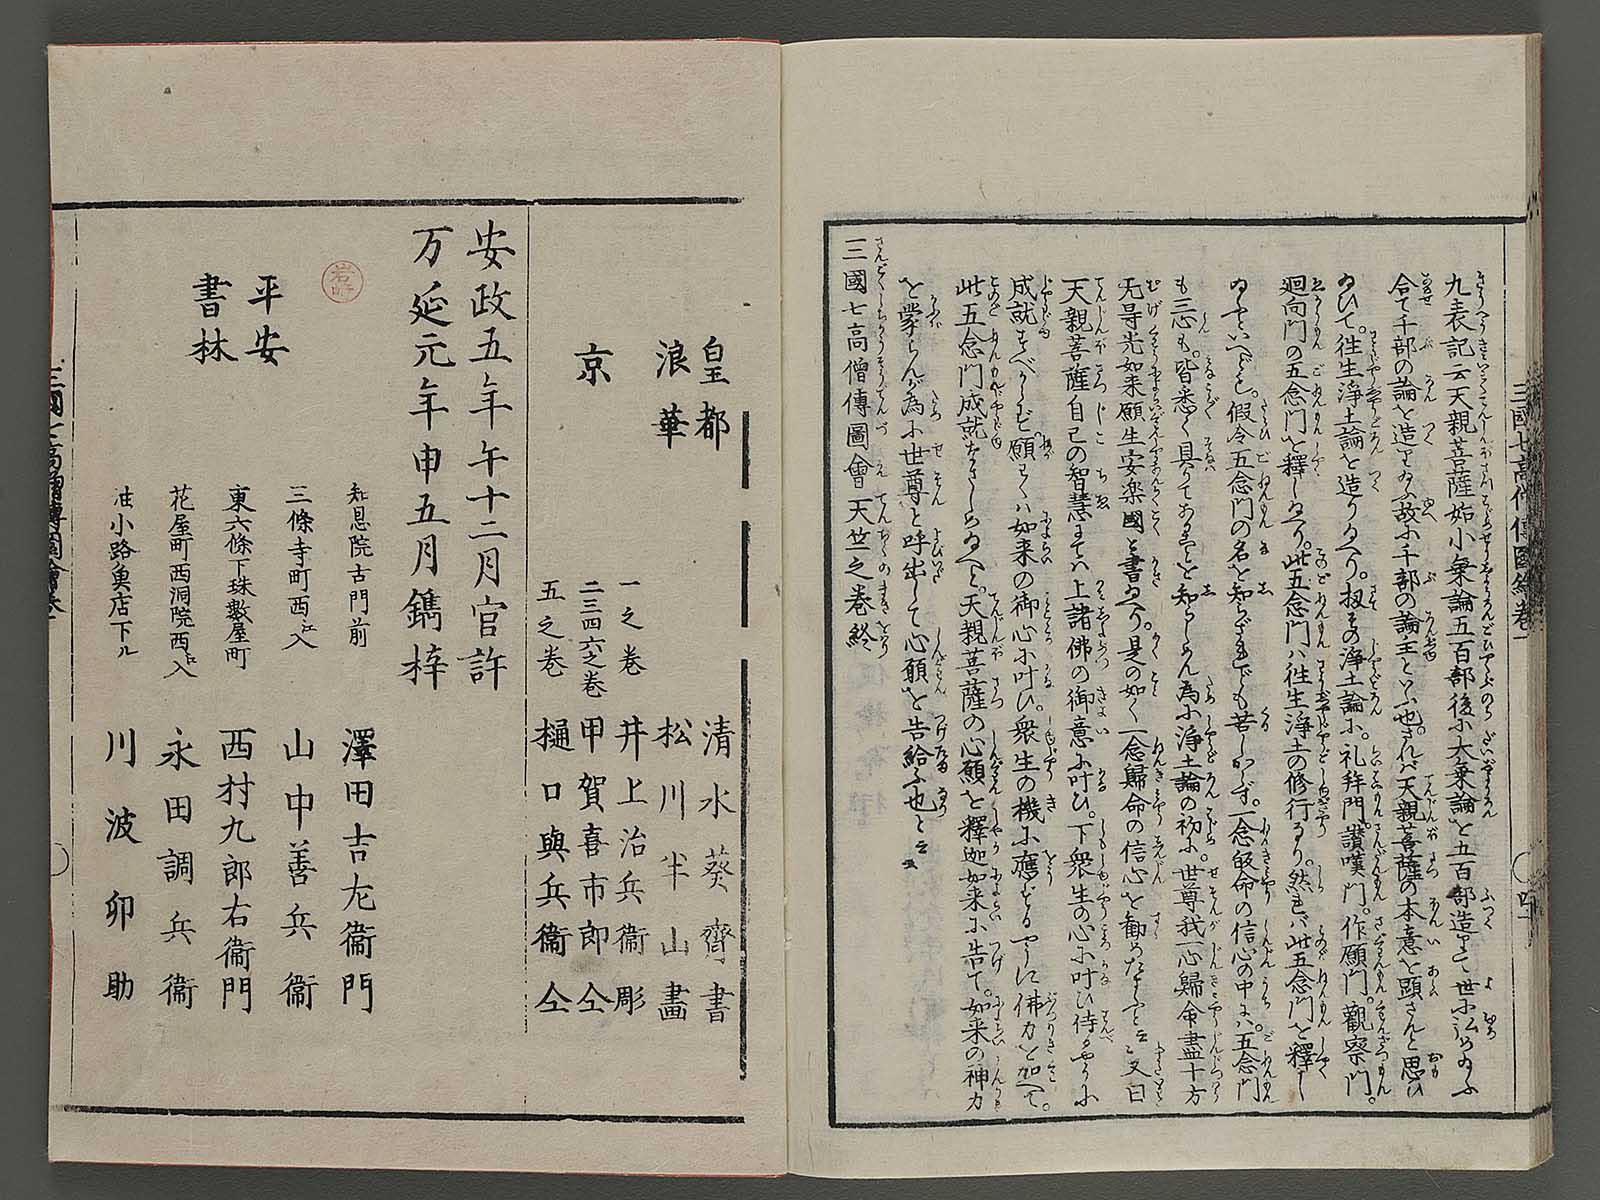 九表記云天親菩薩始小乗論五百部後に大乗論を五百部造りて世に弘め給ふ
合て千部の論を造り給ふ故に千部の論主といふ也されば天親菩薩の本意を顕さんと思ひ
給ひて。往生浄土論を造り給へり。扨その浄土論に。礼拜門。讃嘆門。作願門。觀察門。
廻向門の五念門を釋し給へり。此五念門ハ往生浄土の修行なり。然れバ此五念門を釋し
給ふといへども。假令五念門の名を知らざれども苦しからず。一念皈命の信心の中にハ。五念門
も三心も。皆悉く具りてあることを知らしめん為に浄土論の初に。世尊我一心歸命盡十方
无㝵光如来願生安楽國と書給へり。是の如く一念歸命の信心を勧めたまふと云々又曰
天親菩薩自己の智慧にてハ上諸佛の御意に叶ひ。下衆生の心に叶ひ侍るやうに
成就すべからず願くハ如来の御心に叶ひ衆生の機に應ずるやうに佛力を加へて。
此五念門成就なさしめ給へと。天親菩薩の心願を釋迦如来に告て。如来の神力
を蒙らんが為に世尊と呼出して心願を告給ふ也と云云
三國七高僧傳圖會天竺之卷終
三國七高僧傳圖繪卷一
皇都 清水葵齋書
浪華 松川半山畫
一之卷 井上治兵衞彫
京 二三四六之卷 甲賀喜市郎仝
五之卷 樋口與兵衞仝
安政五年午十二月官許
万延元年申五月鐫梓
平安
書林
知恩院古門前 澤田吉左衞門
三條寺町西江入 山中善兵衞
東六條下珠數屋町 西村九郎右衞門
花屋町西洞院西江入 永田調兵衞
油小路魚店下ル 川波卯助
三國七高僧傳圖會卷一